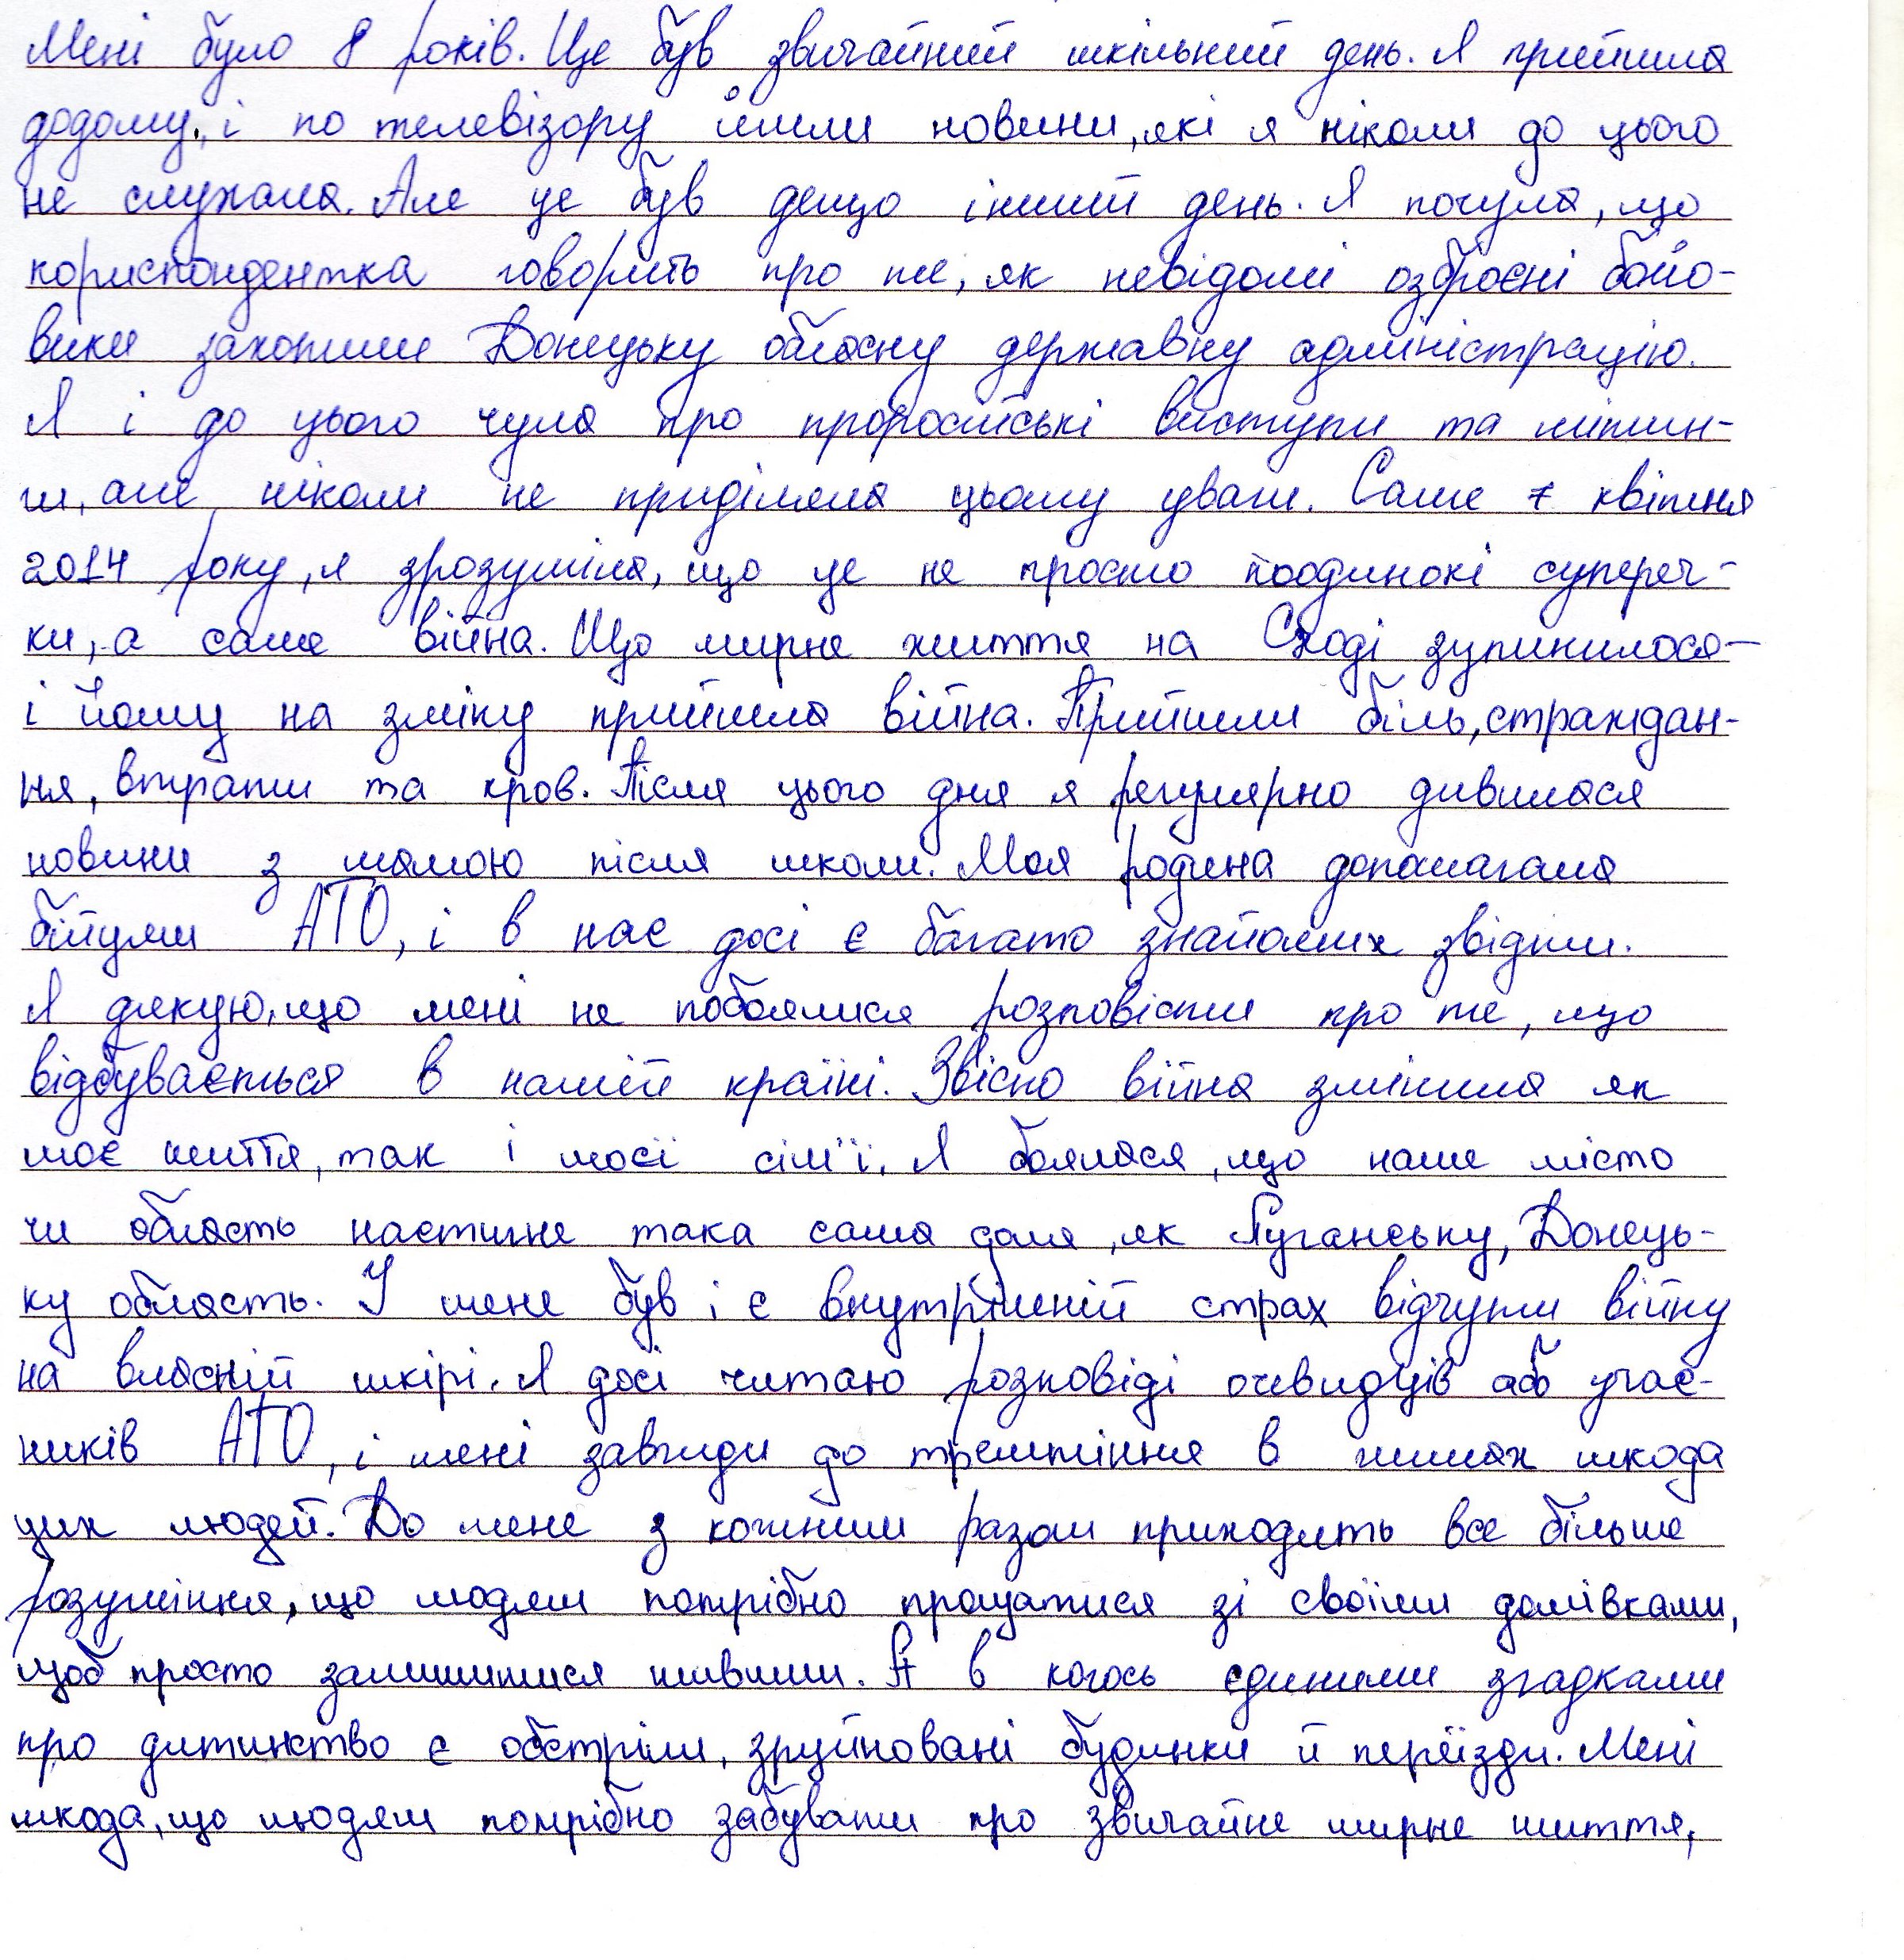 Мені було 8 років. Це був звичайний шкільний день. Я прийшла
додому, і по телевізору йшли новини, які я ніколи до цього
не слухала. Але це був дещо інший день. Я почула, що
кориспондентка говорить про те, як невідомі озброєні бойо-
вики захопили Донецьку обласну державну адміністрацію.
Я і до цього чула про проросійські виступи та мітин-
ги, але ніколи не приділяла цьому уваги. Саме 7 квітня
2014 року, я зрозуміла, що це не просто поодинокі супереч-
ки, а саме війна. Що мирне життя на Сході зупинилося —
і йому на зміну прийшла війна. Прийшли біль, страждан-
ня, втрати та кров. Після цього дня я регулярно дивилася
новини з мамою після школи. Моя родина допомагала
бійцям АТО, і в нас досі є багато знайомих звідти.
Я дякую, що мені не побоялися розповісти про те, що
відбувається в нашій країні. Звісно війна змінила як
моє життя, так і моєї сім'ї. Я боялася, що наше місто
чи область настигне така сама доля, як Луганську, Донець-
ку область. У мене був і є внутрішній страх відчути війну
на власній шкірі. Я досі читаю розповіді очевидців або учас-
ників АТО, і мені завжди до тремтіння в жилах шкода
цих людей. До мене з кожним разом приходить все більше
розуміння, що людям потрібно прощатися зі своїми домівками,
щоб просто залишитися живими. А в когось єдиними згадками
про дитинство є обстріли, зруйновані будинки й переїзди. Мені
шкода, що людям потрібно забувати про звичайне мирне життя,